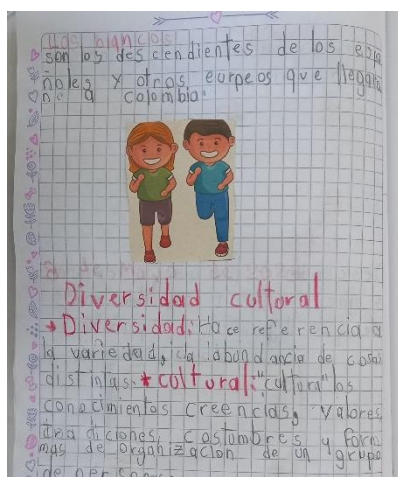 Los blancos
son los descendientes de los espa
ñoles y otros eurpeos que llegaro
n a colombia.
Diversidad coltoral
→ Diversidad: Hace referencia a
la variedad, la abundancia de cosas
distintas. * coltoral: "cultura" los
conocimientos creencias, valores,
tradiciones, costumbres y for
mas de organización de un grupo
de personas